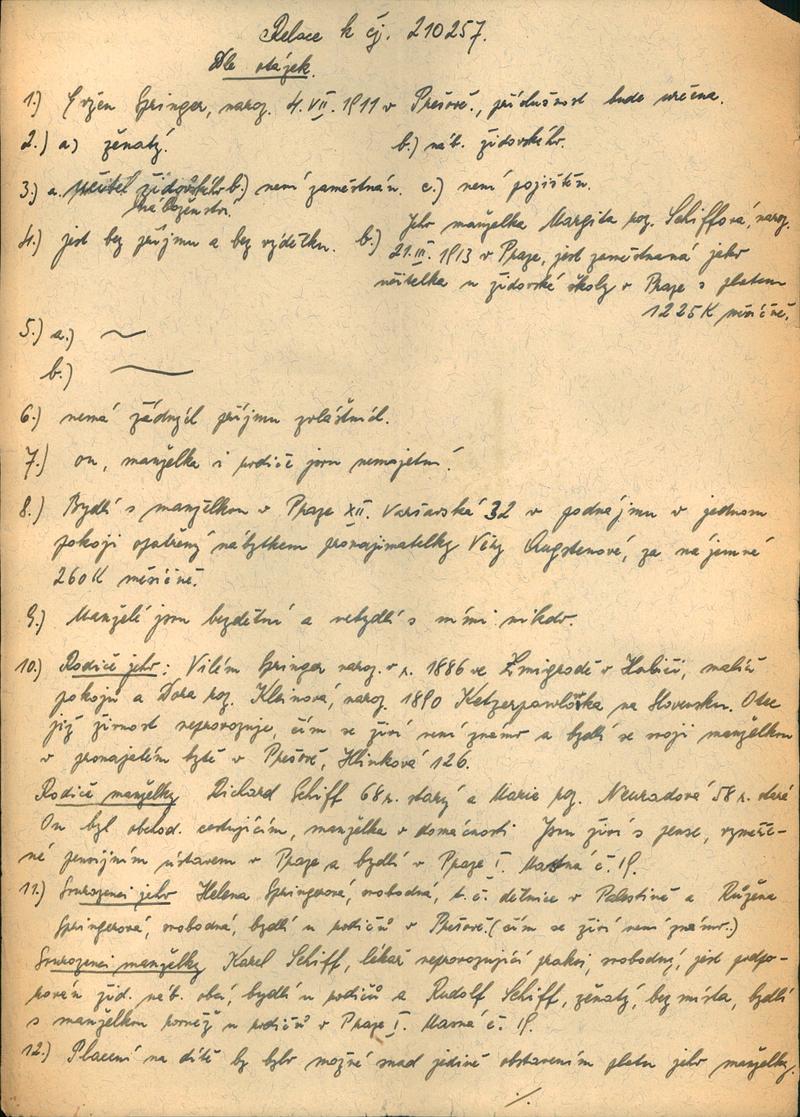 Relace k čj. 210257.
Dle otázek.
1.) Evžen Springer, naroz. 4.VII.1911 v Prešově., příslušnost bude určena.
2.) a.) ženatý. b.) náb. židovského.
3.) a. učitel židovského b.) není zaměstnán. c.) není pojištěn.
náboženství.
4.) jest bez příjmu a bez výdělku. b.) Jeho manželka Margita roz. Schiffová, naroz.
21.III.1913 v Praze, jest zaměstnaná jako
učitelka u židovské školy v Praze s platem
1225K měsíčně.
5.) a.) ~
b.) ~
6.) nemá žádných příjmu zvláštních.
7.) on, manželka i rodiče jsou nemajetní.
8.) Bydlí s manželkou v Praze XII. Varšavská 32 v podnájmu v jednom
pokoji opatřený nábytkem pronajimatelky Věry Augstenové, za nájemné
260K měsíčně.
9.) Manželé jsou bezdětní a nebydlí s nimi nikdo.
10.) Rodiče jeho: Vilém Springer naroz. v r. 1886 ve Žmigrodě v Haliči, malíř
pokojů a Dora roz. Kleinová, naroz. 1890 na Slovensku. Otec
již živnost neprovozuje, čím se živí není známo a bydlí se svojí manželkou
v pronajatém bytě v Prešově, Hlinková 126.
Rodiče manželky Richard Schiff 68 r. starý a Marie roz. Neuradová 58 r. stará
On byl obchod. cestujícím, manželka v domácnosti Jsou živi s pense, vyměře-
né pensijním ústavem v Praze a bydlí v Praze I. Masná č. 19.
11.) Sourozenci jeho Helena Springerová, svobodná, t. č. dělnice v Palestině a Růžena
Springerová, svobodná, bydlí u rodičů v Prešově. (čím se živí není známo.)
Sourozenci manželky Karel Schiff, lékař neprovozující praksi, svobodný, jest podpo-
rován žid. náb. obcí, bydlí u rodičů a Rudolf Schiff, ženatý, bez místa, bydlí
s manželkou rovněž u rodičů v Praze I. Masná č. 19.
12.) Placení na dítě by bylo možné snad jedině obstavením platu jeho manželky.
./.